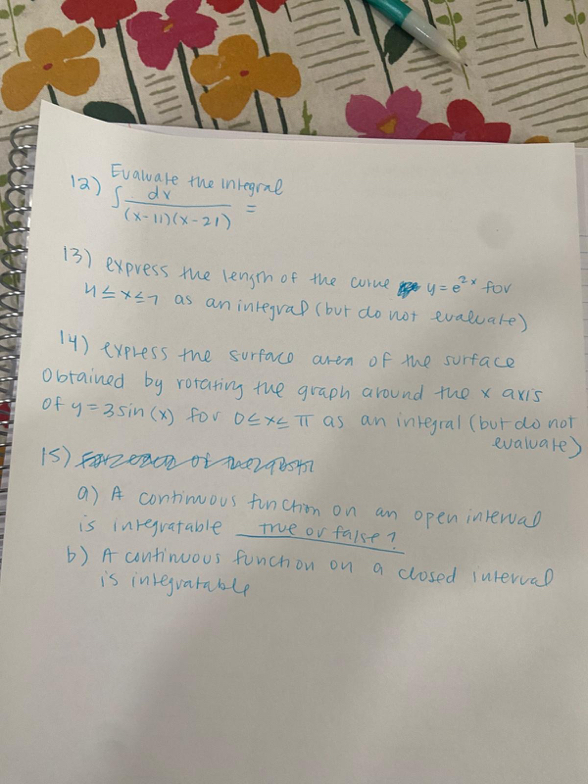 12) Evaluate the integral
∫ dx / (x-11)(x-21) =
13) express the length of the curve y = e^2x for
4 ≤ x ≤ 7 as an integral (but do not evaluate)
14) express the surface area of the surface
obtained by rotating the graph around the x axis
of y = 3 sin (x) for 0 ≤ x ≤ π as an integral (but do not
evaluate)
15)
a) A continuous function on an open interval
is integratable true or false?
b) A continuous function on a closed interval
is integratable